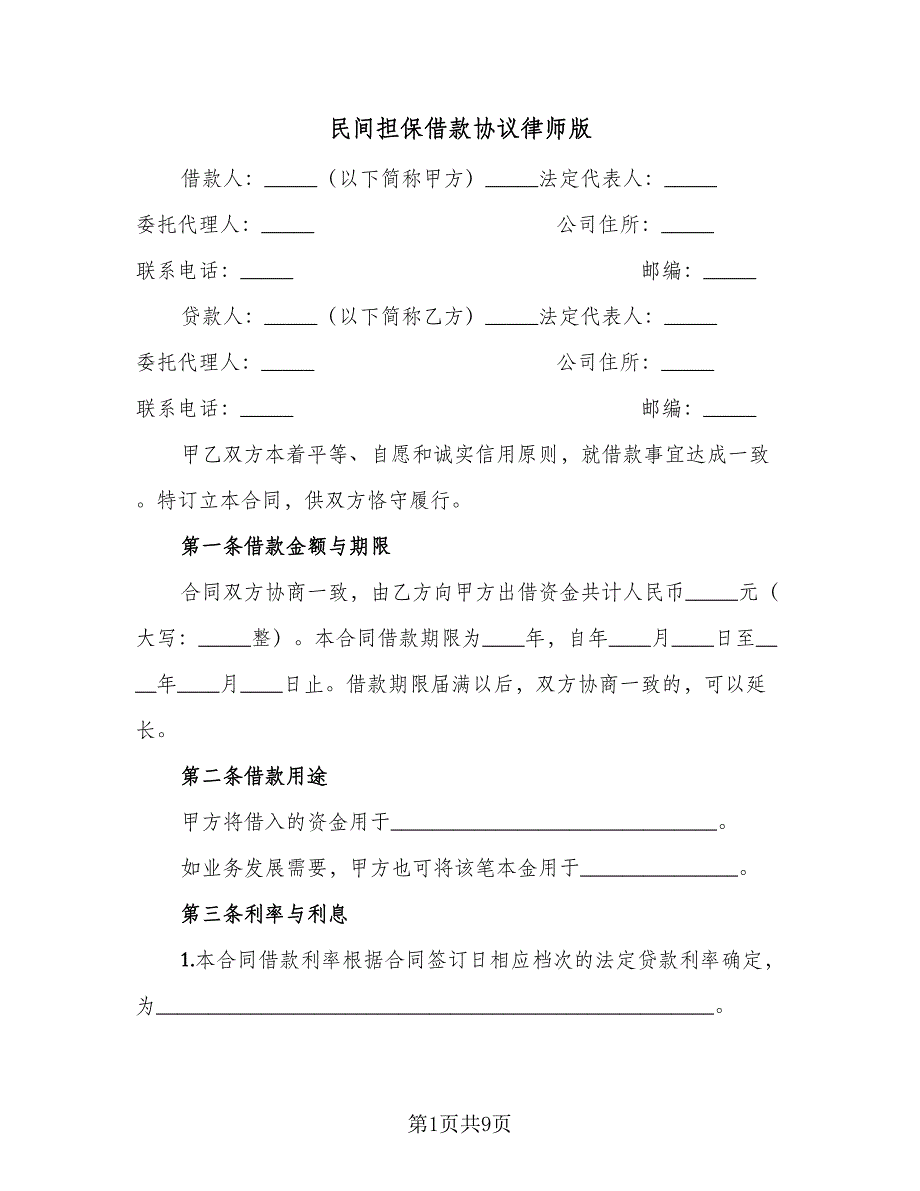 民间担保借款协议律师版
借款人：_____（以下简称甲方）_____法定代表人：_____
委托代理人：_____ 公司住所：_____
联系电话：_____ 邮编：_____
贷款人：_____（以下简称乙方）_____法定代表人：_____
委托代理人：_____ 公司住所：_____
联系电话：_____ 邮编：_____
甲乙双方本着平等、自愿和诚实信用原则，就借款事宜达成一致
。特订立本合同，供双方恪守履行。
第一条借款金额与期限
合同双方协商一致，由乙方向甲方出借资金共计人民币_____元（
大写：_____整）。本合同借款期限为____年，自年____月____日至__
__年____月____日止。借款期限届满以后，双方协商一致的，可以延
长。
第二条借款用途
甲方将借入的资金用于_______________________________。
如业务发展需要，甲方也可将该笔本金用于_______________。
第三条利率与利息
1.本合同借款利率根据合同签订日相应档次的法定贷款利率确定，
为_____________________________________________________。
第1页共9页